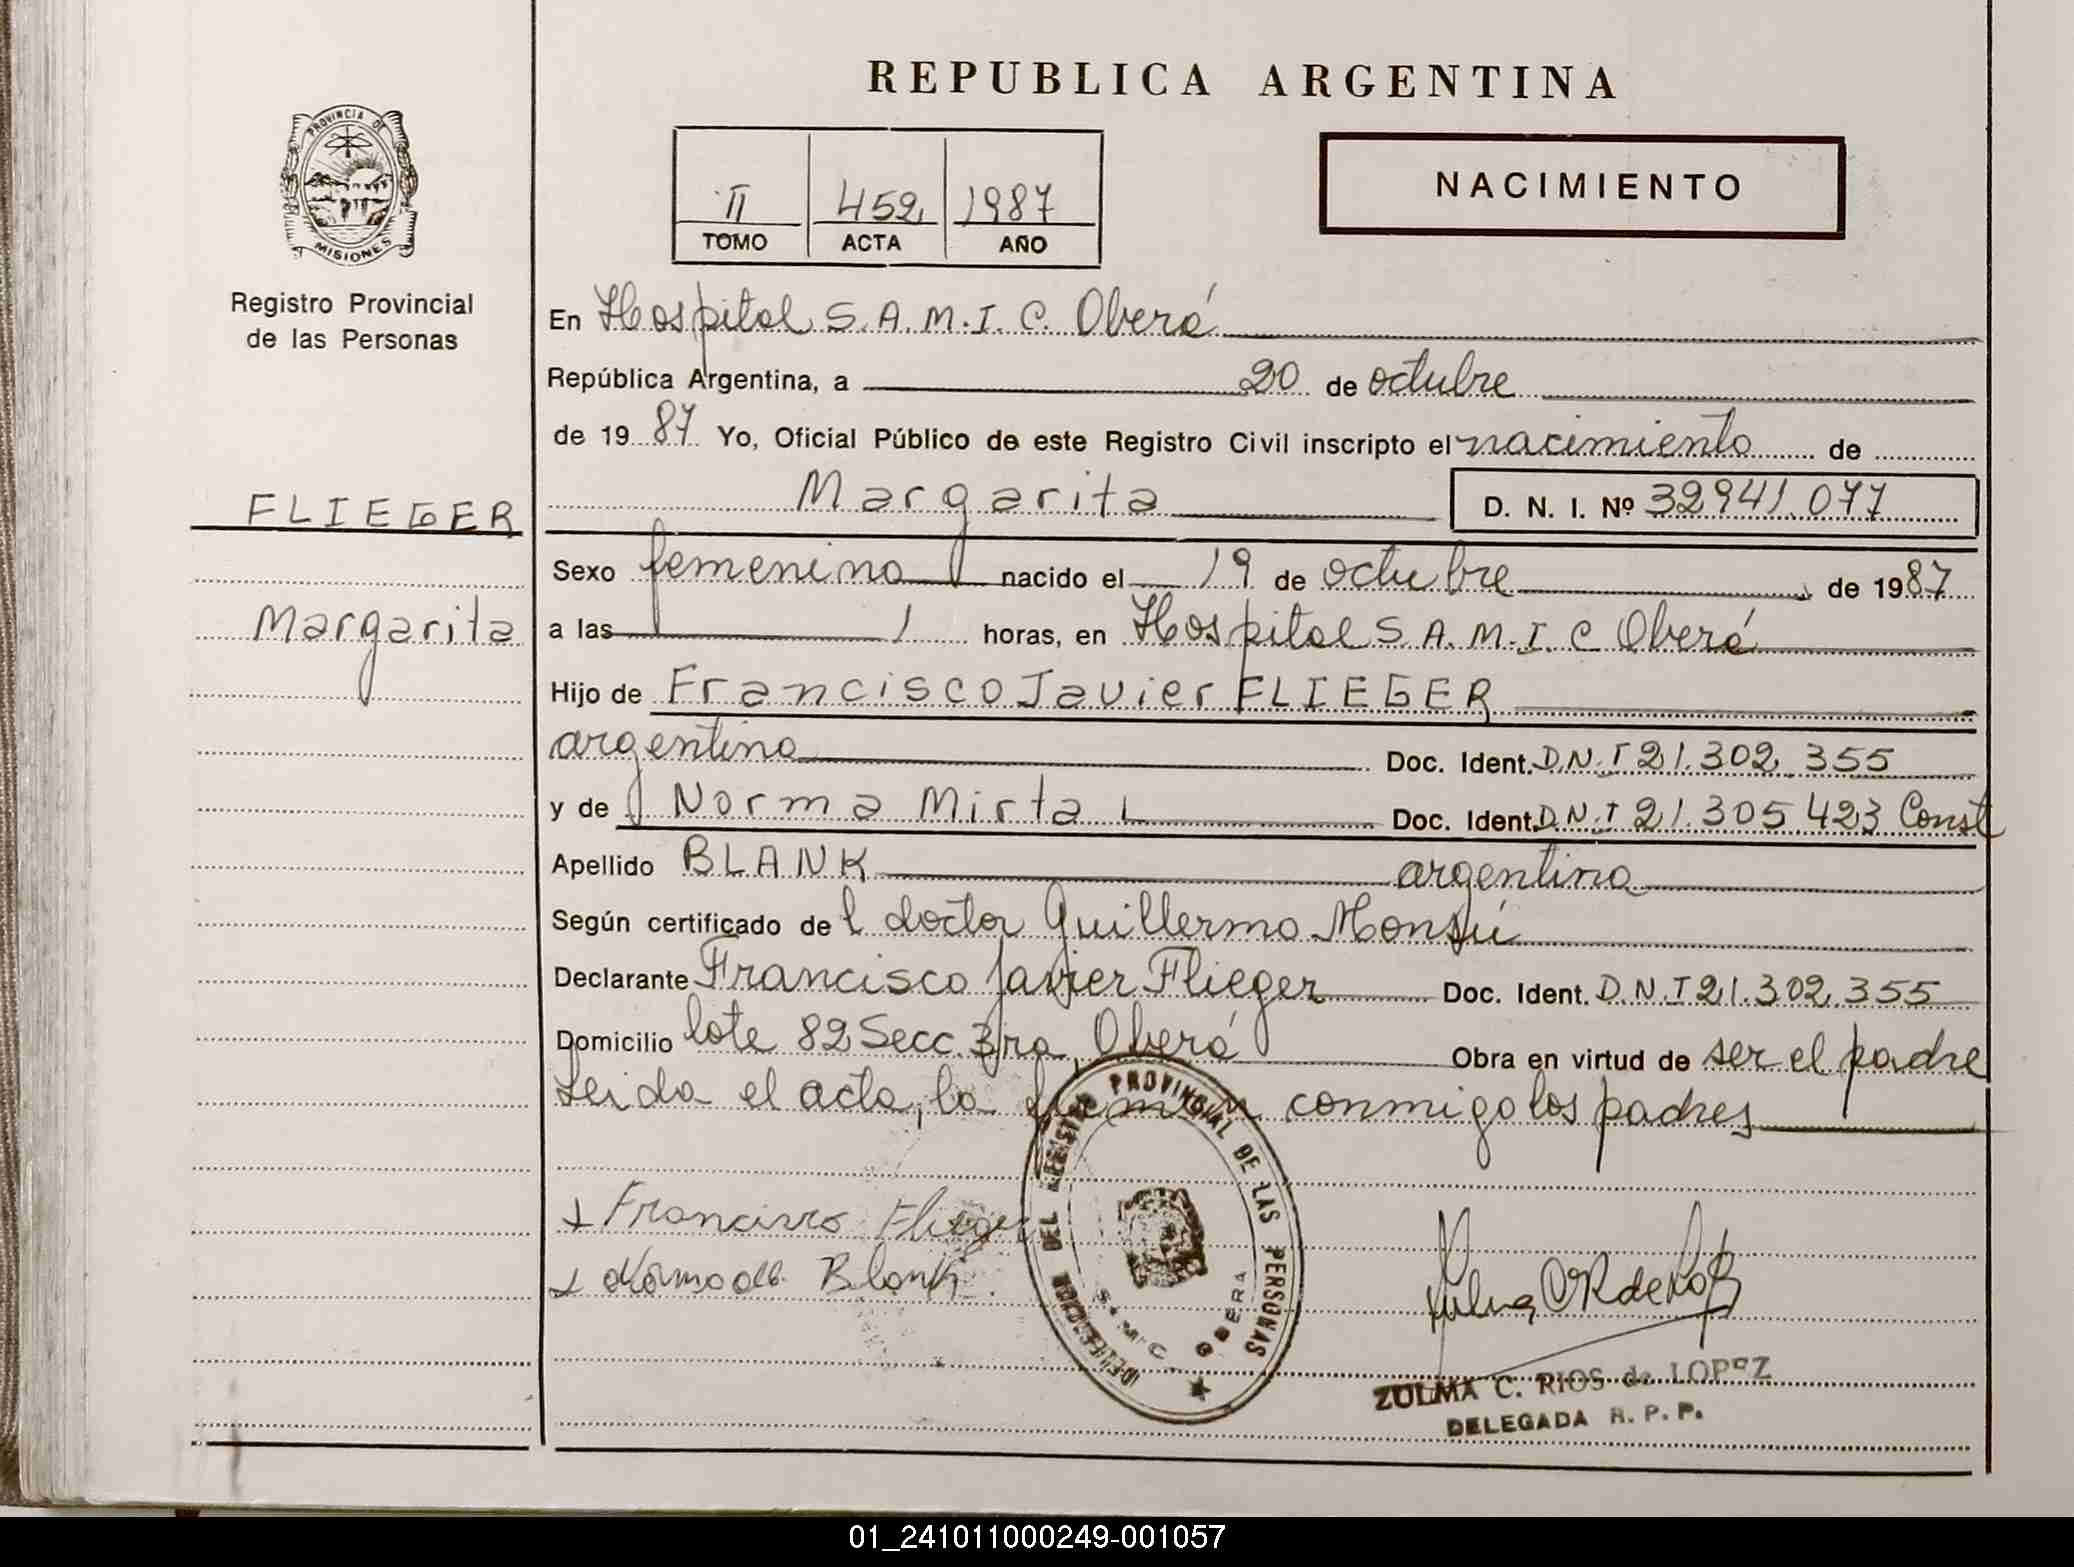 REPUBLICA ARGENTINA
PROVINCIA DE
MISIONES
Registro Provincial
de las Personas
II 452 1987
TOMO ACTA AÑO
NACIMIENTO
En Hospital S.A.M.I.C. Oberá
República Argentina, a 20 de octubre
de 1987 Yo, Oficial Público de este Registro Civil inscripto el nacimiento de
Margarita D. N. I. Nº 32941.077
FLIEGER
Sexo femenino nacido el 19 de octubre de 1987
Margarita
a las 1 horas, en Hospital S A.M.I.C Oberá
Hijo de Francisco Javier FLIEGER
argentino Doc. Ident. D.N.I 21.302.355
y de Norma Mirta Doc. Ident. D.N.I 21.305.423 Const
Apellido BLANK argentina
Según certificado de l doctor Guillermo Monsú
Declarante Francisco Javier Flieger Doc. Ident. D.N.I 21.302.355
Domicilio lote 82 Secc. 3ra, Oberá Obra en virtud de ser el padre
Leida el acta, la firman conmigo los padres
DELEGACION DEL REGISTRO PROVINCIAL DE LAS PERSONAS
S.A.M.I.C. OBERA
Francisco Flieger
Blank
ZULMA C. RIOS de LOPEZ
DELEGADA R. P. P.
01_241011000249-001057